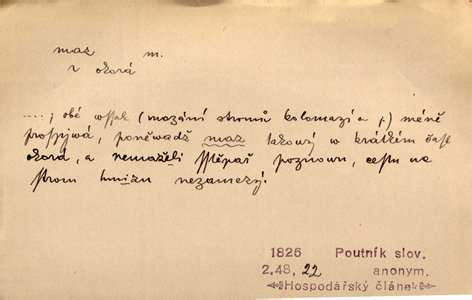 maz m.
v okorá
....; obé wssak (mazání stromů kolomazí a j.) méně
prospjwá, poněwadž maz takowý w krátkém čase
okorá, a nemaželi sstěpař poznowu, cestu na
strom hmizu nezamezý.
1826 Poutník slov.
2,48, 22 anonym.
Hospodářský článek